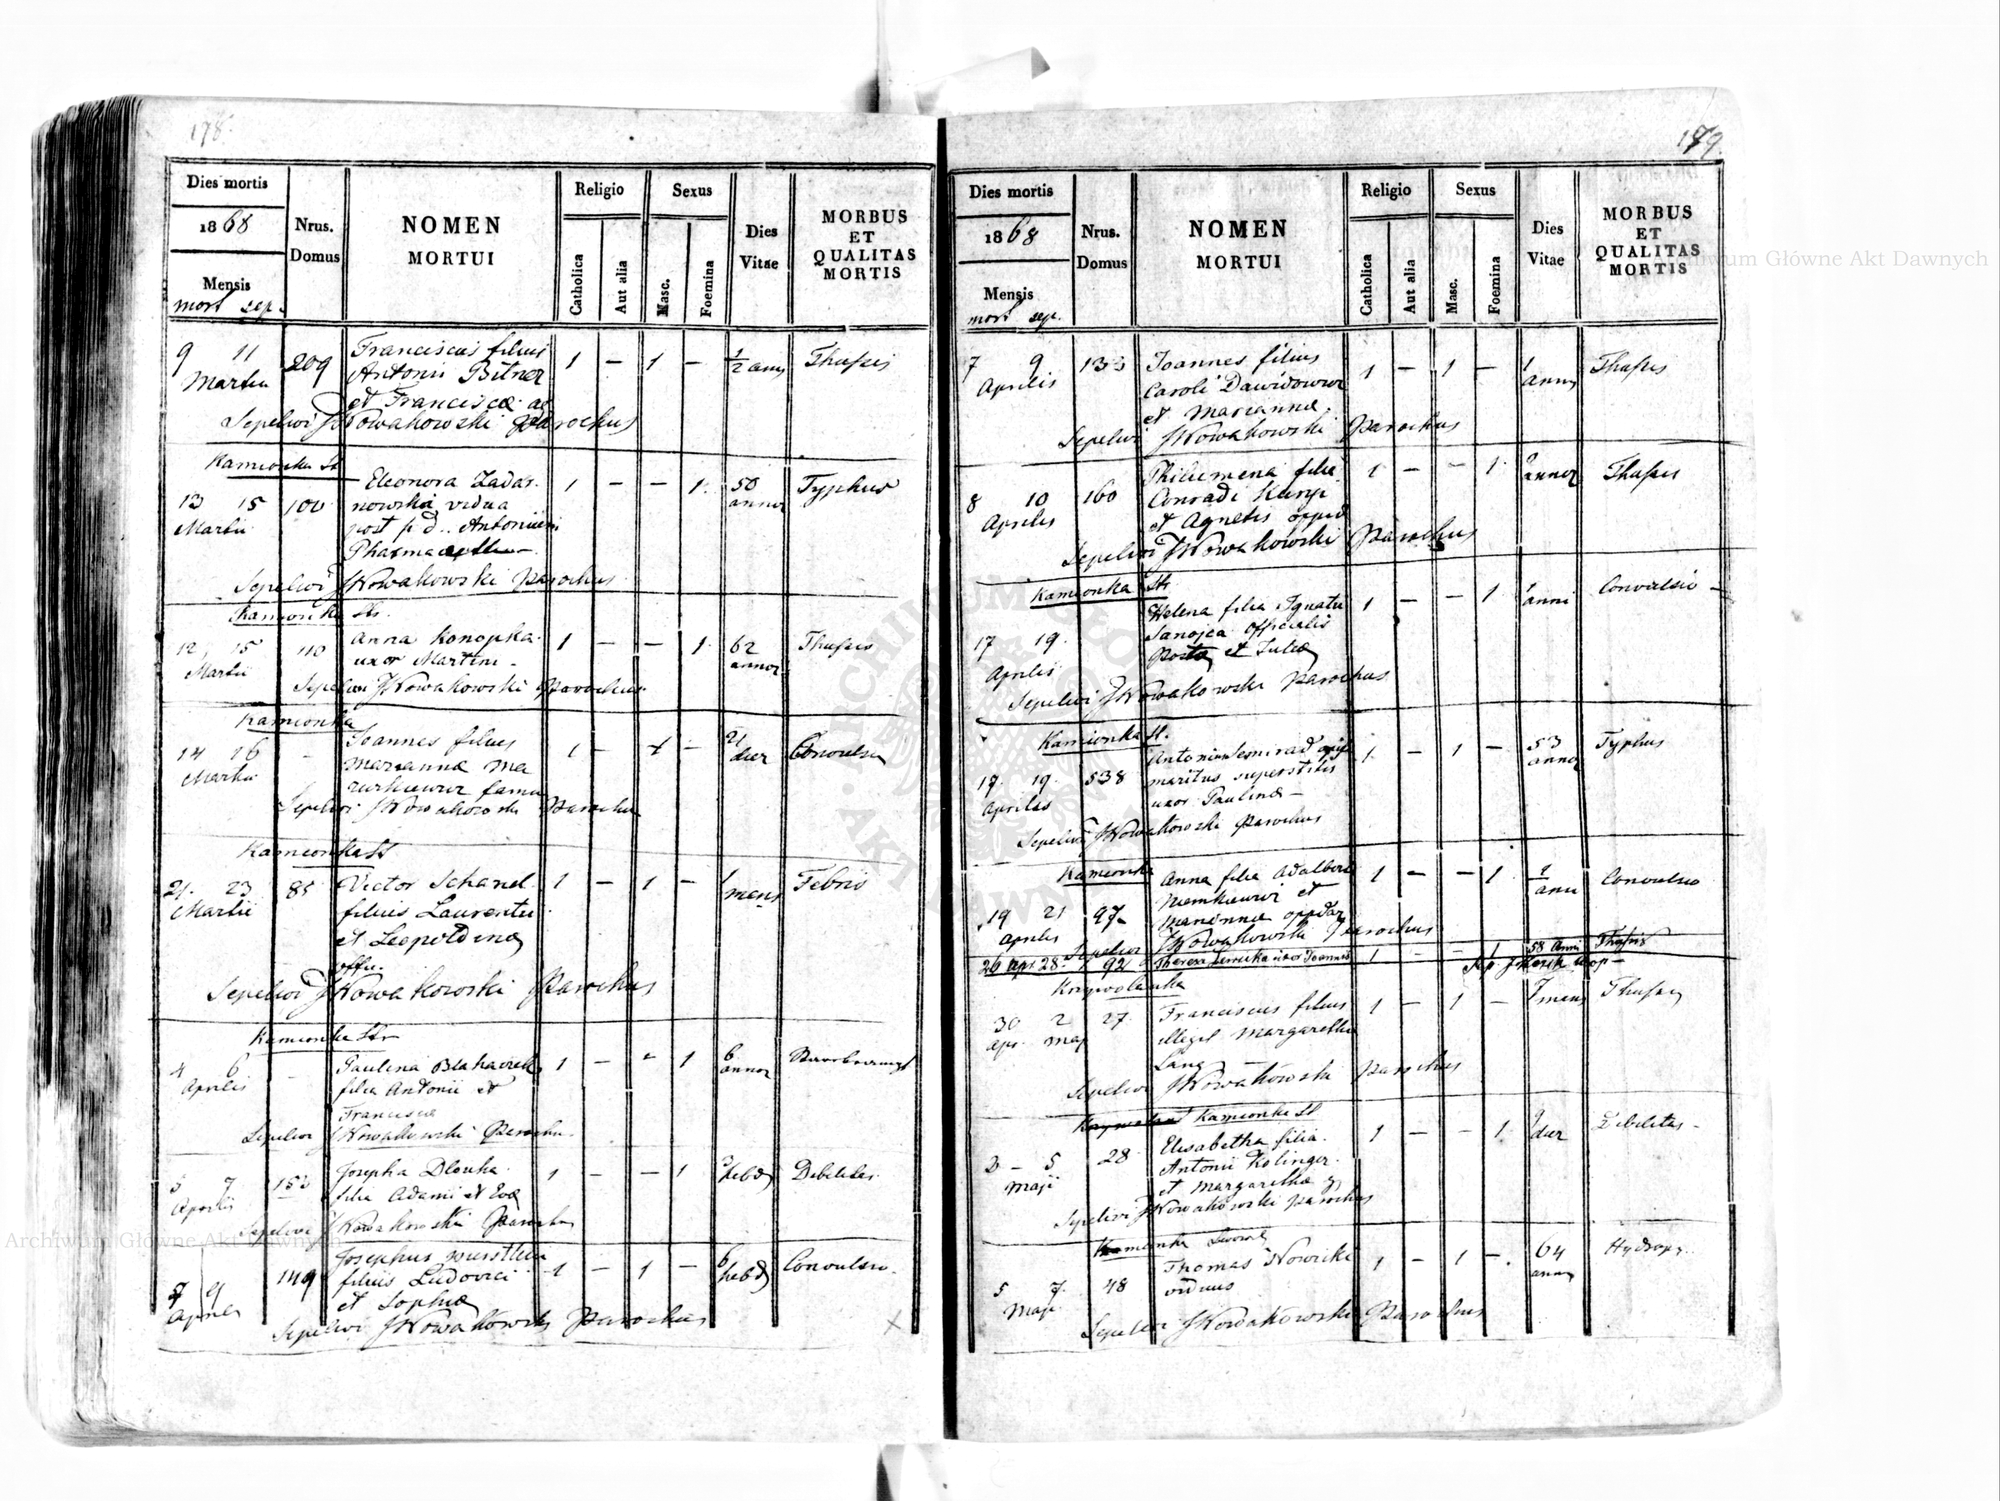 178.
Dies mortis
1868
Mensis
mort sep.
Nrus. Domus
NOMEN
MORTUI
Religio
Catholica
Aut alia
Sexus
Masc.
Foemina
Dies
Vitae
MORBUS
ET
QUALITAS
MORTIS
9 11 209 Franciscus filius 1 — 1 — 1/2 anni Thussis
Martii Antonii Bitner
et Franciscae
Sepelivi JNowakowski Parochus
Kamionka St
13 15 100 Eleonora Zadar- 1 — — 1 50 Typhus
Martii nowska vidua annor
post p d. Antonium
Sepelivi JNowakowski Parochus
Kamionka Str.
12 15 110 Anna Konopka 1 — — 1 62 Thussis
Martii uxor Martini annor
Sepelivi JNowakowski Parochus
Kamionka
14 16 — Joannes filius 1 — 1 — 21 Convulsio
Martii Mariannae Ma dier
zurkiewicz famu
Sepelivi JNowakowski Parochus
Kamionka St
21. 23 85 Victor Schand 1 — 1 — 1 Febris
Martii filius Laurentii mens
et Leopoldinae
offic.
Sepelivi JNowakowski Parochus
Kamionka Str
4 6 — Paulina 1 — — 1 6
Aprilis filia Antonii et annor
Franciscae
Sepelivi JNowakowski Parochus
5 7 Josepha Dlouha 1 — — 1 hebd Debilitas
Aprilis filia Adami et Evae
Sepelivi JNowakowski Parochus
7 9 149 Josephus 1 — 1 — 6 Convulsio
Aprilis filius Ludovici hebd
et Sophiae
Sepelivi JNowakowski Parochus
179.
Dies mortis
1868
Mensis
mort sep.
Nrus. Domus
NOMEN
MORTUI
Religio
Catholica
Aut alia
Sexus
Masc.
Foemina
Dies
Vitae
MORBUS
ET
QUALITAS
MORTIS
7 9 133 Joannes filius 1 — 1 — 1 Thussis
Aprilis Caroli Dawidowicz anni
et Marianna
Sepelivi JNowakowski Parochus
8 10 160 Philumena filia 1 — — 1 2 Thussis
Aprilis Conradi annor
et Agnetis oppid
Sepelivi JNowakowski Parochus
Kamionka Str
17 19. Helena filia Ignatii 1 — — 1 1 Convulsio —
Aprilis Sanojca officialis anni
Postae et Juliae
Sepelivi JNowakowski Parochus
Kamionka St.
17 19. 538 Antonius Semirad 1 — 1 — 53 Typhus
Aprilis maritus superstitis annor
uxor Paulinae —
Sepelivi JNowakowski Parochus
Kamionka
19 21 97 Anna filia Adalberti 1 — — 1 1/2 Convulsio
Aprilis Niemkiewicz et anni
Mariannae oppidar
Sepelivi JNowakowski Parochus
26 Apr 28. 92 Theresa uxor Joannis 1 — — 1 58 Anni Thussis
30 2 27 Franciscus filius 1 — 1 — 7 mens Thussis
Apr. Maj illegit Margarethae
Lang
Sepelivi JNowakowski Parochus
Kamionka St
3 — 5 28 Elisabetha filia 1 — — 1 9 Debilitas —
Maji Antonii Kolinger dier
et Margarethae
Sepelivi JNowakowski Parochus
Kamionka
5 7. 48 Thomas Nowicki 1 — 1 — 64 Hydrops.
Maji viduus annor
Sepelivi JNowakowski Parochus
ARCHIWUM GŁÓWNE AKT DAWNYCH
Archiwum Główne Akt Dawnych
Archiwum Główne Akt Dawnych